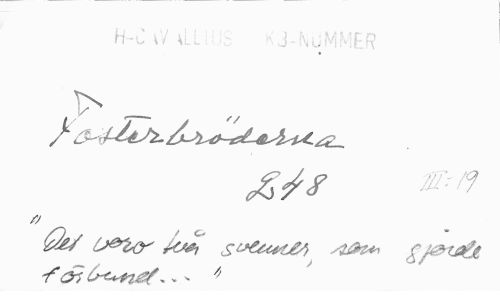 H-CAVALLIUS KB-NUMMER
Fosterbröderna
2,48 III:19
"Det voro två svenner, som gjorde
förbund... "